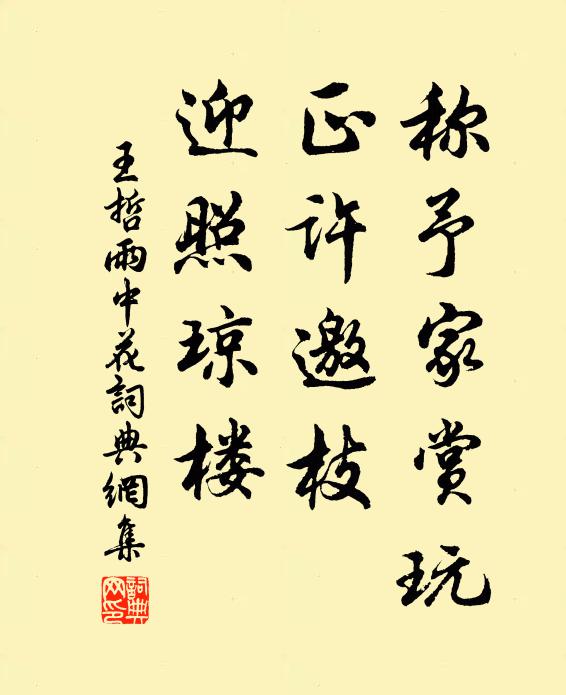 称予家赏玩
正许邀枝
迎照琼楼
王哲雨中花詞典網集
詞典网印